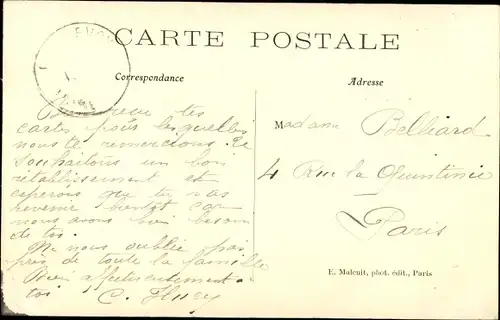 CARTE POSTALE
Correspondance
Adresse
Bien reçu tes
cartes pour lesquelles
nous te remercions. Je
souhaitons un bon
rétablissement et
esperons que tu vas
revenir bientot car
nous avons bien besoin
de toi.
Ne nous oublie pas
près de toute la famille
Bien affectueusement à
toi C. Huey
Madame Belliard
4 Rue la Quintinie
Paris
E. Malcuit, phot. édit., Paris